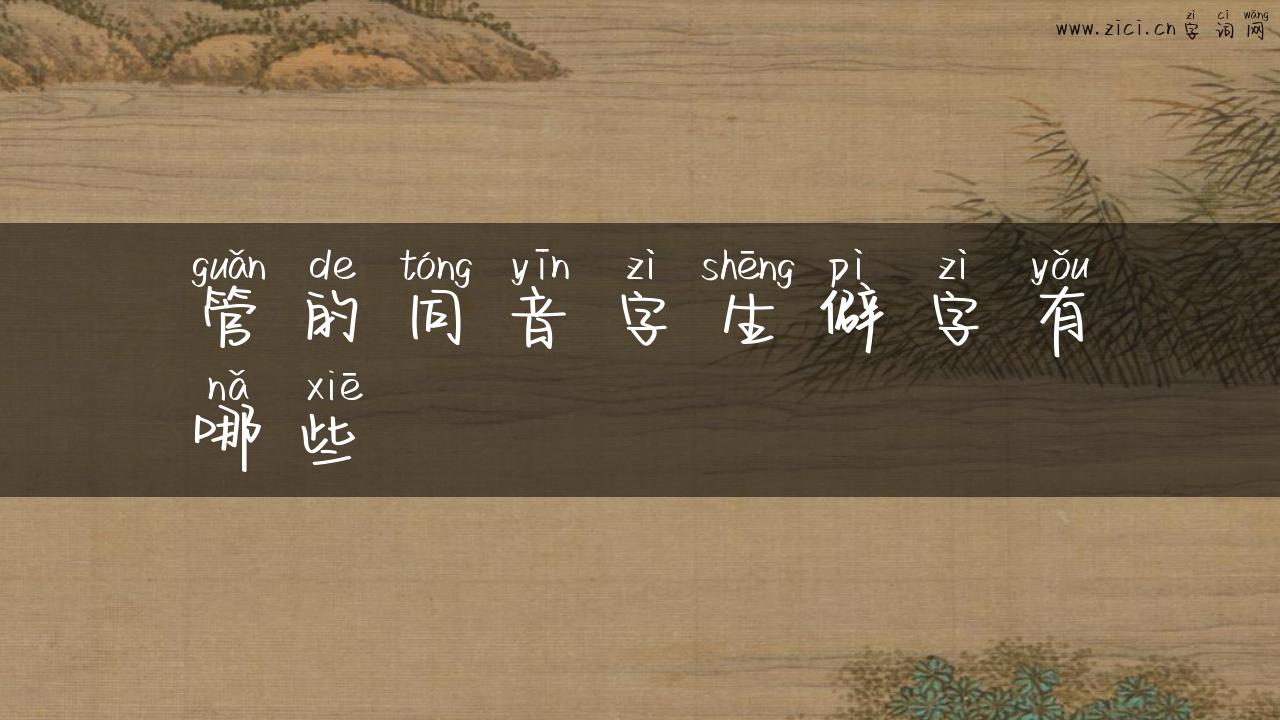 zì cí wǎng
www.zici.cn 字词网
guǎn de tóng yīn zì shēng pì zì yǒu
管的同音字生僻字有
nǎ xiē
哪些